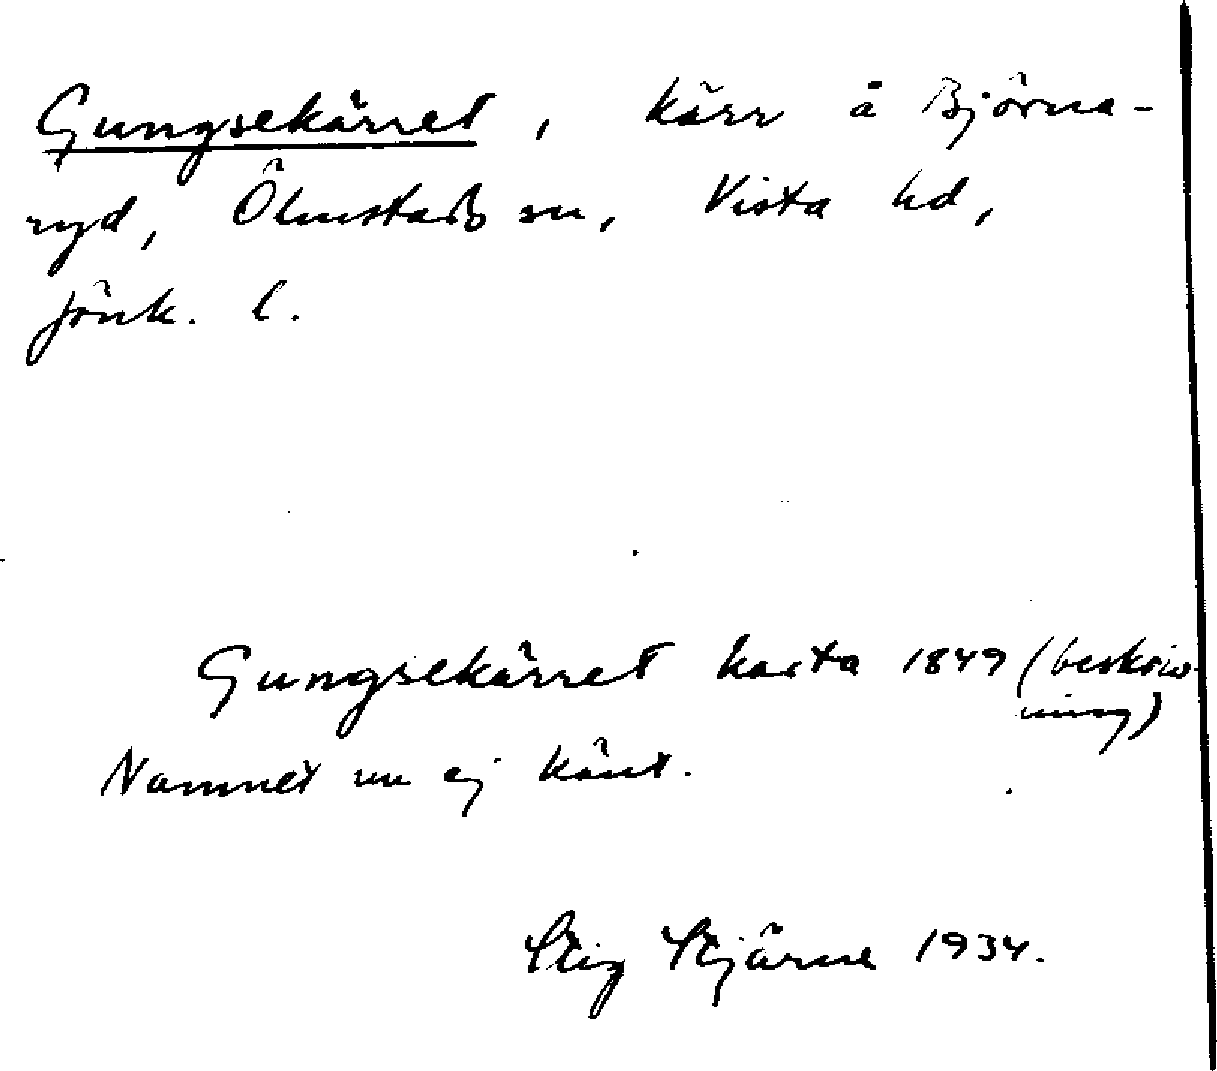 Gungsekärret, kärr å Björna-
ryd, Ölmstads sn, Vista hd,
Jönk. l.
Gungsekärret karta 1849 (beskriv-
ning)
Namnet nu ej känt.
Stig Stjärne 1934.